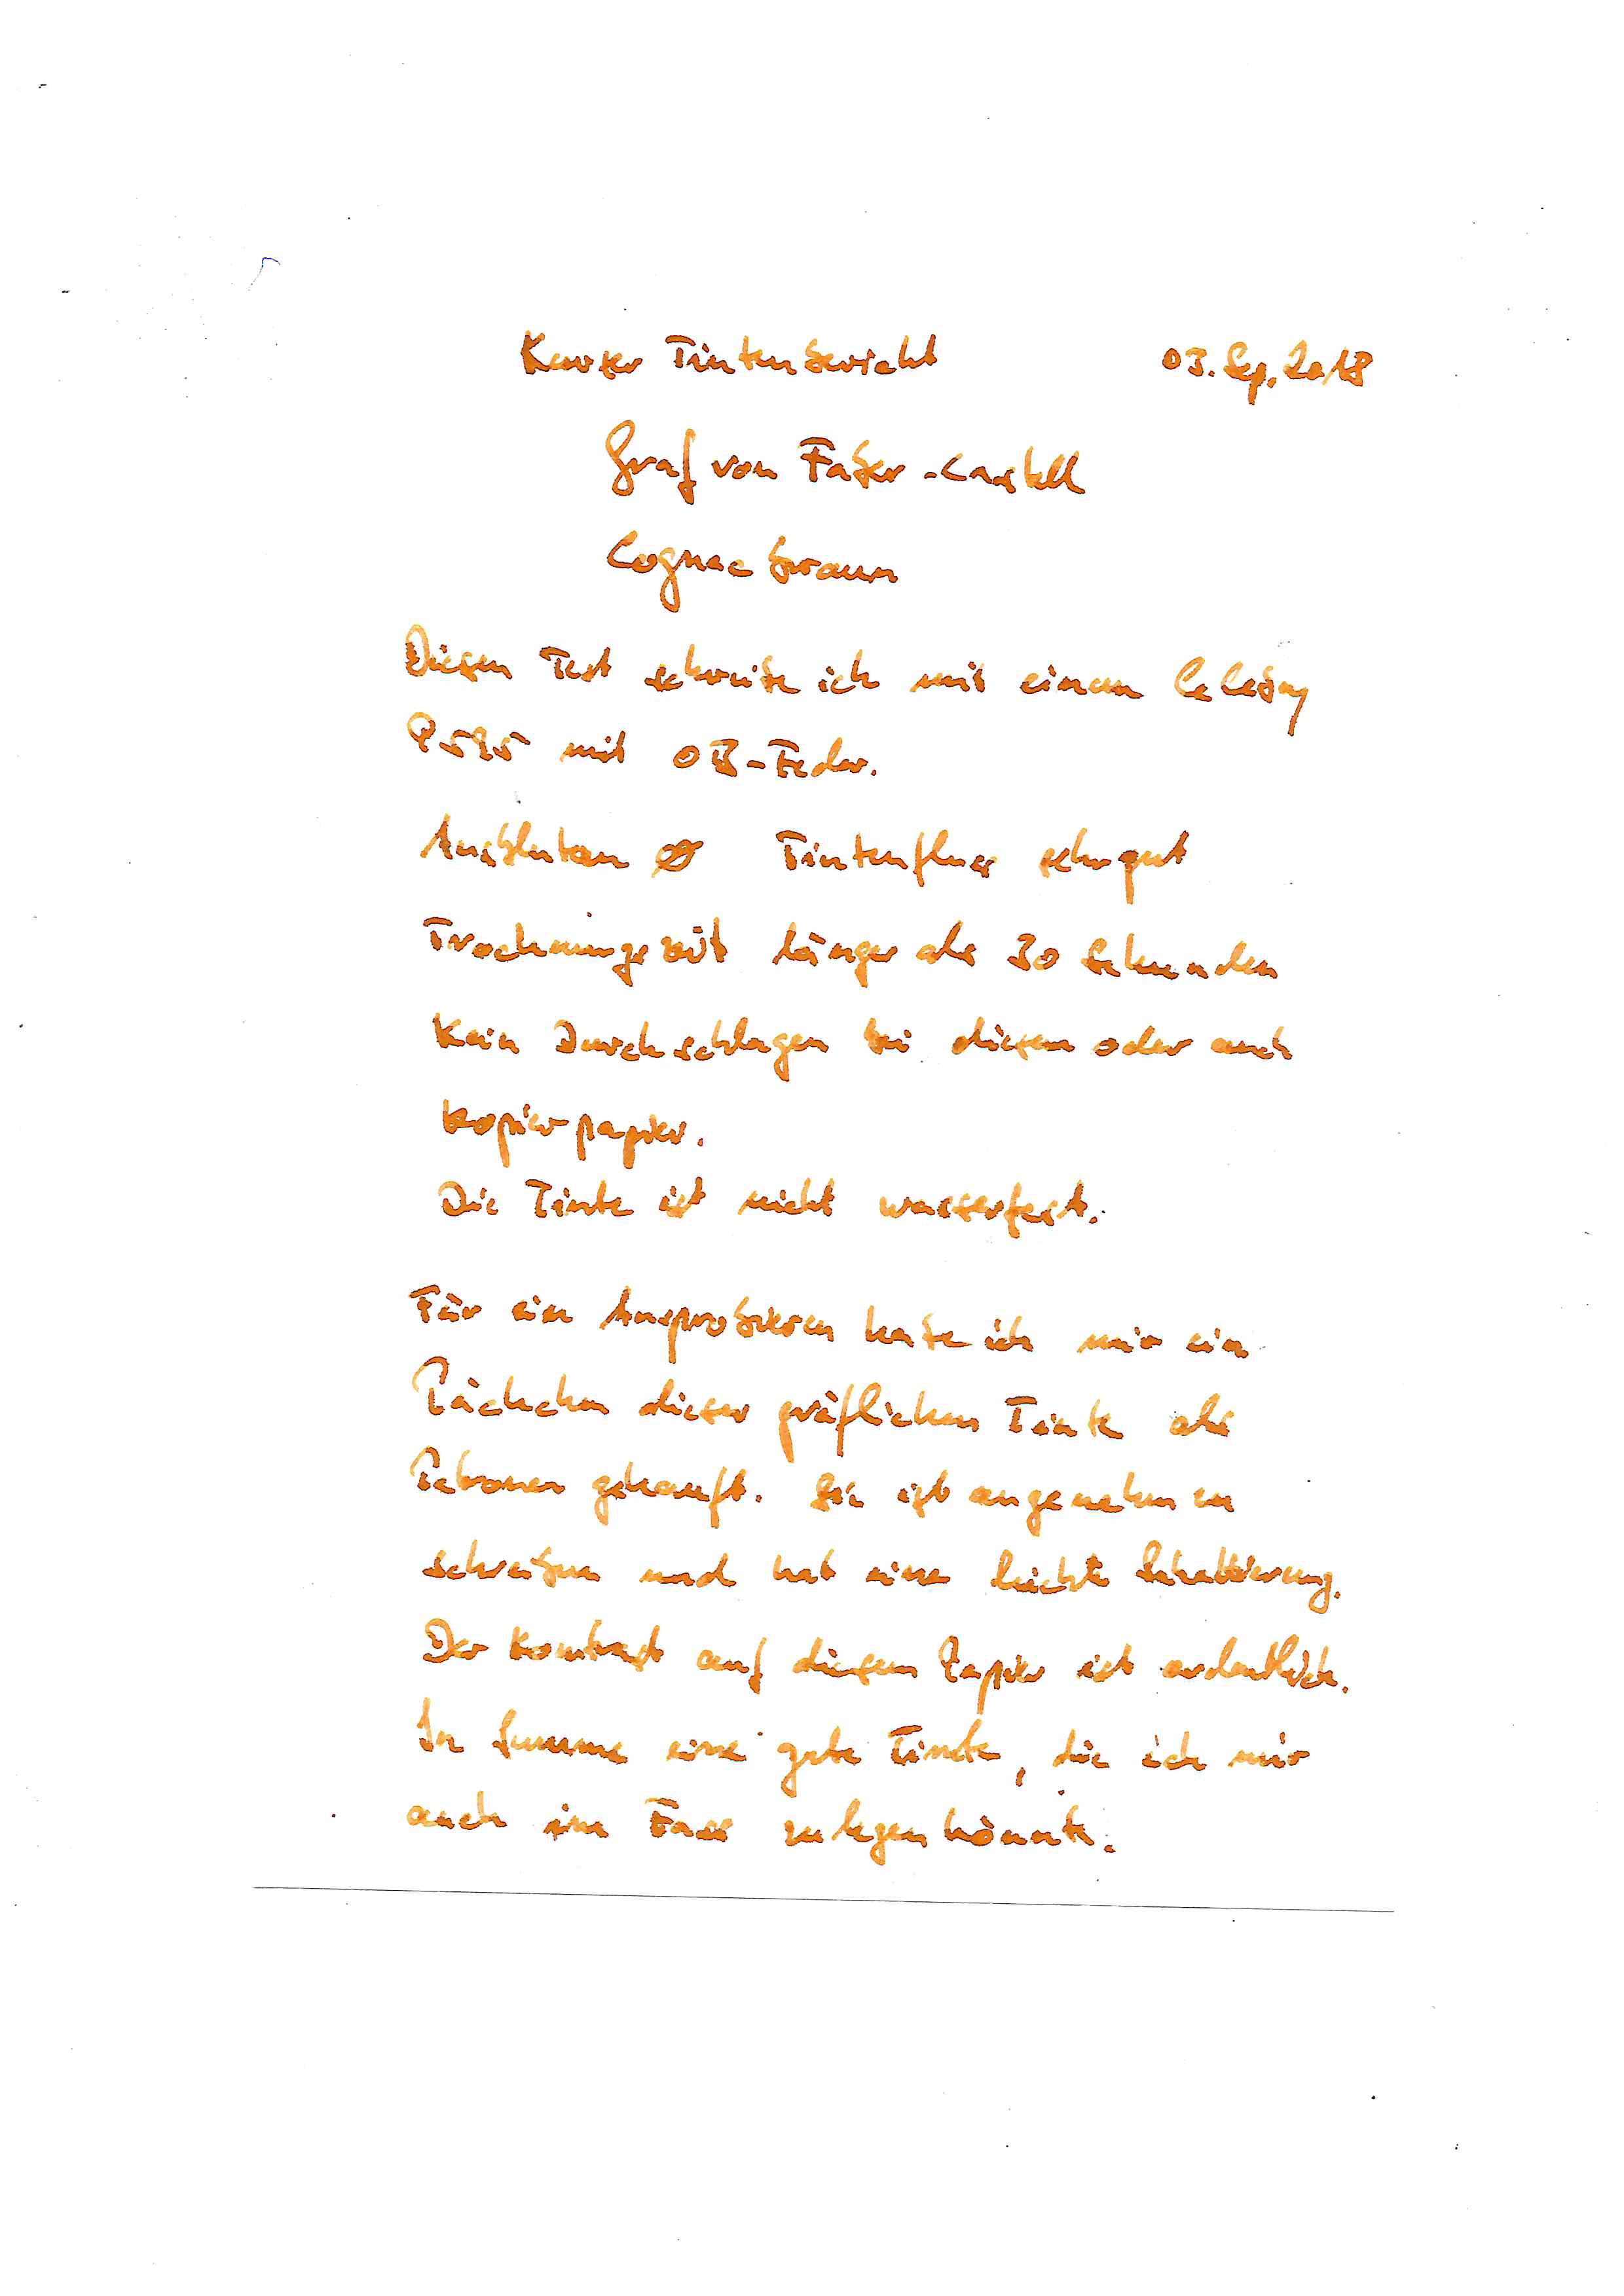 Kurzer Tintenbericht 03. Sep. 2018
Graf von Faber-Castell
Cognac braun
Diesen Test schreibe ich mit einem
P595 mit OB-Feder.
Ausbluten Ø Tintenfluss sehr gut
Trocknungszeit länger als 30 Sekunden
Kein Durchschlagen bei diesem oder auch
Kopierpapier.
Die Tinte ist nicht wasserfest.
Für ein Ausprobieren habe ich mir ein
Päckchen dieser gräflichen Tinte als
Patronen gekauft. Sie ist angenehm zu
schreiben und hat eine leichte Schattierung.
Der Kontrast auf diesem Papier ist ordentlich.
In Summe eine gute Tinte, die ich mir
auch im Fass zulegen könnte.